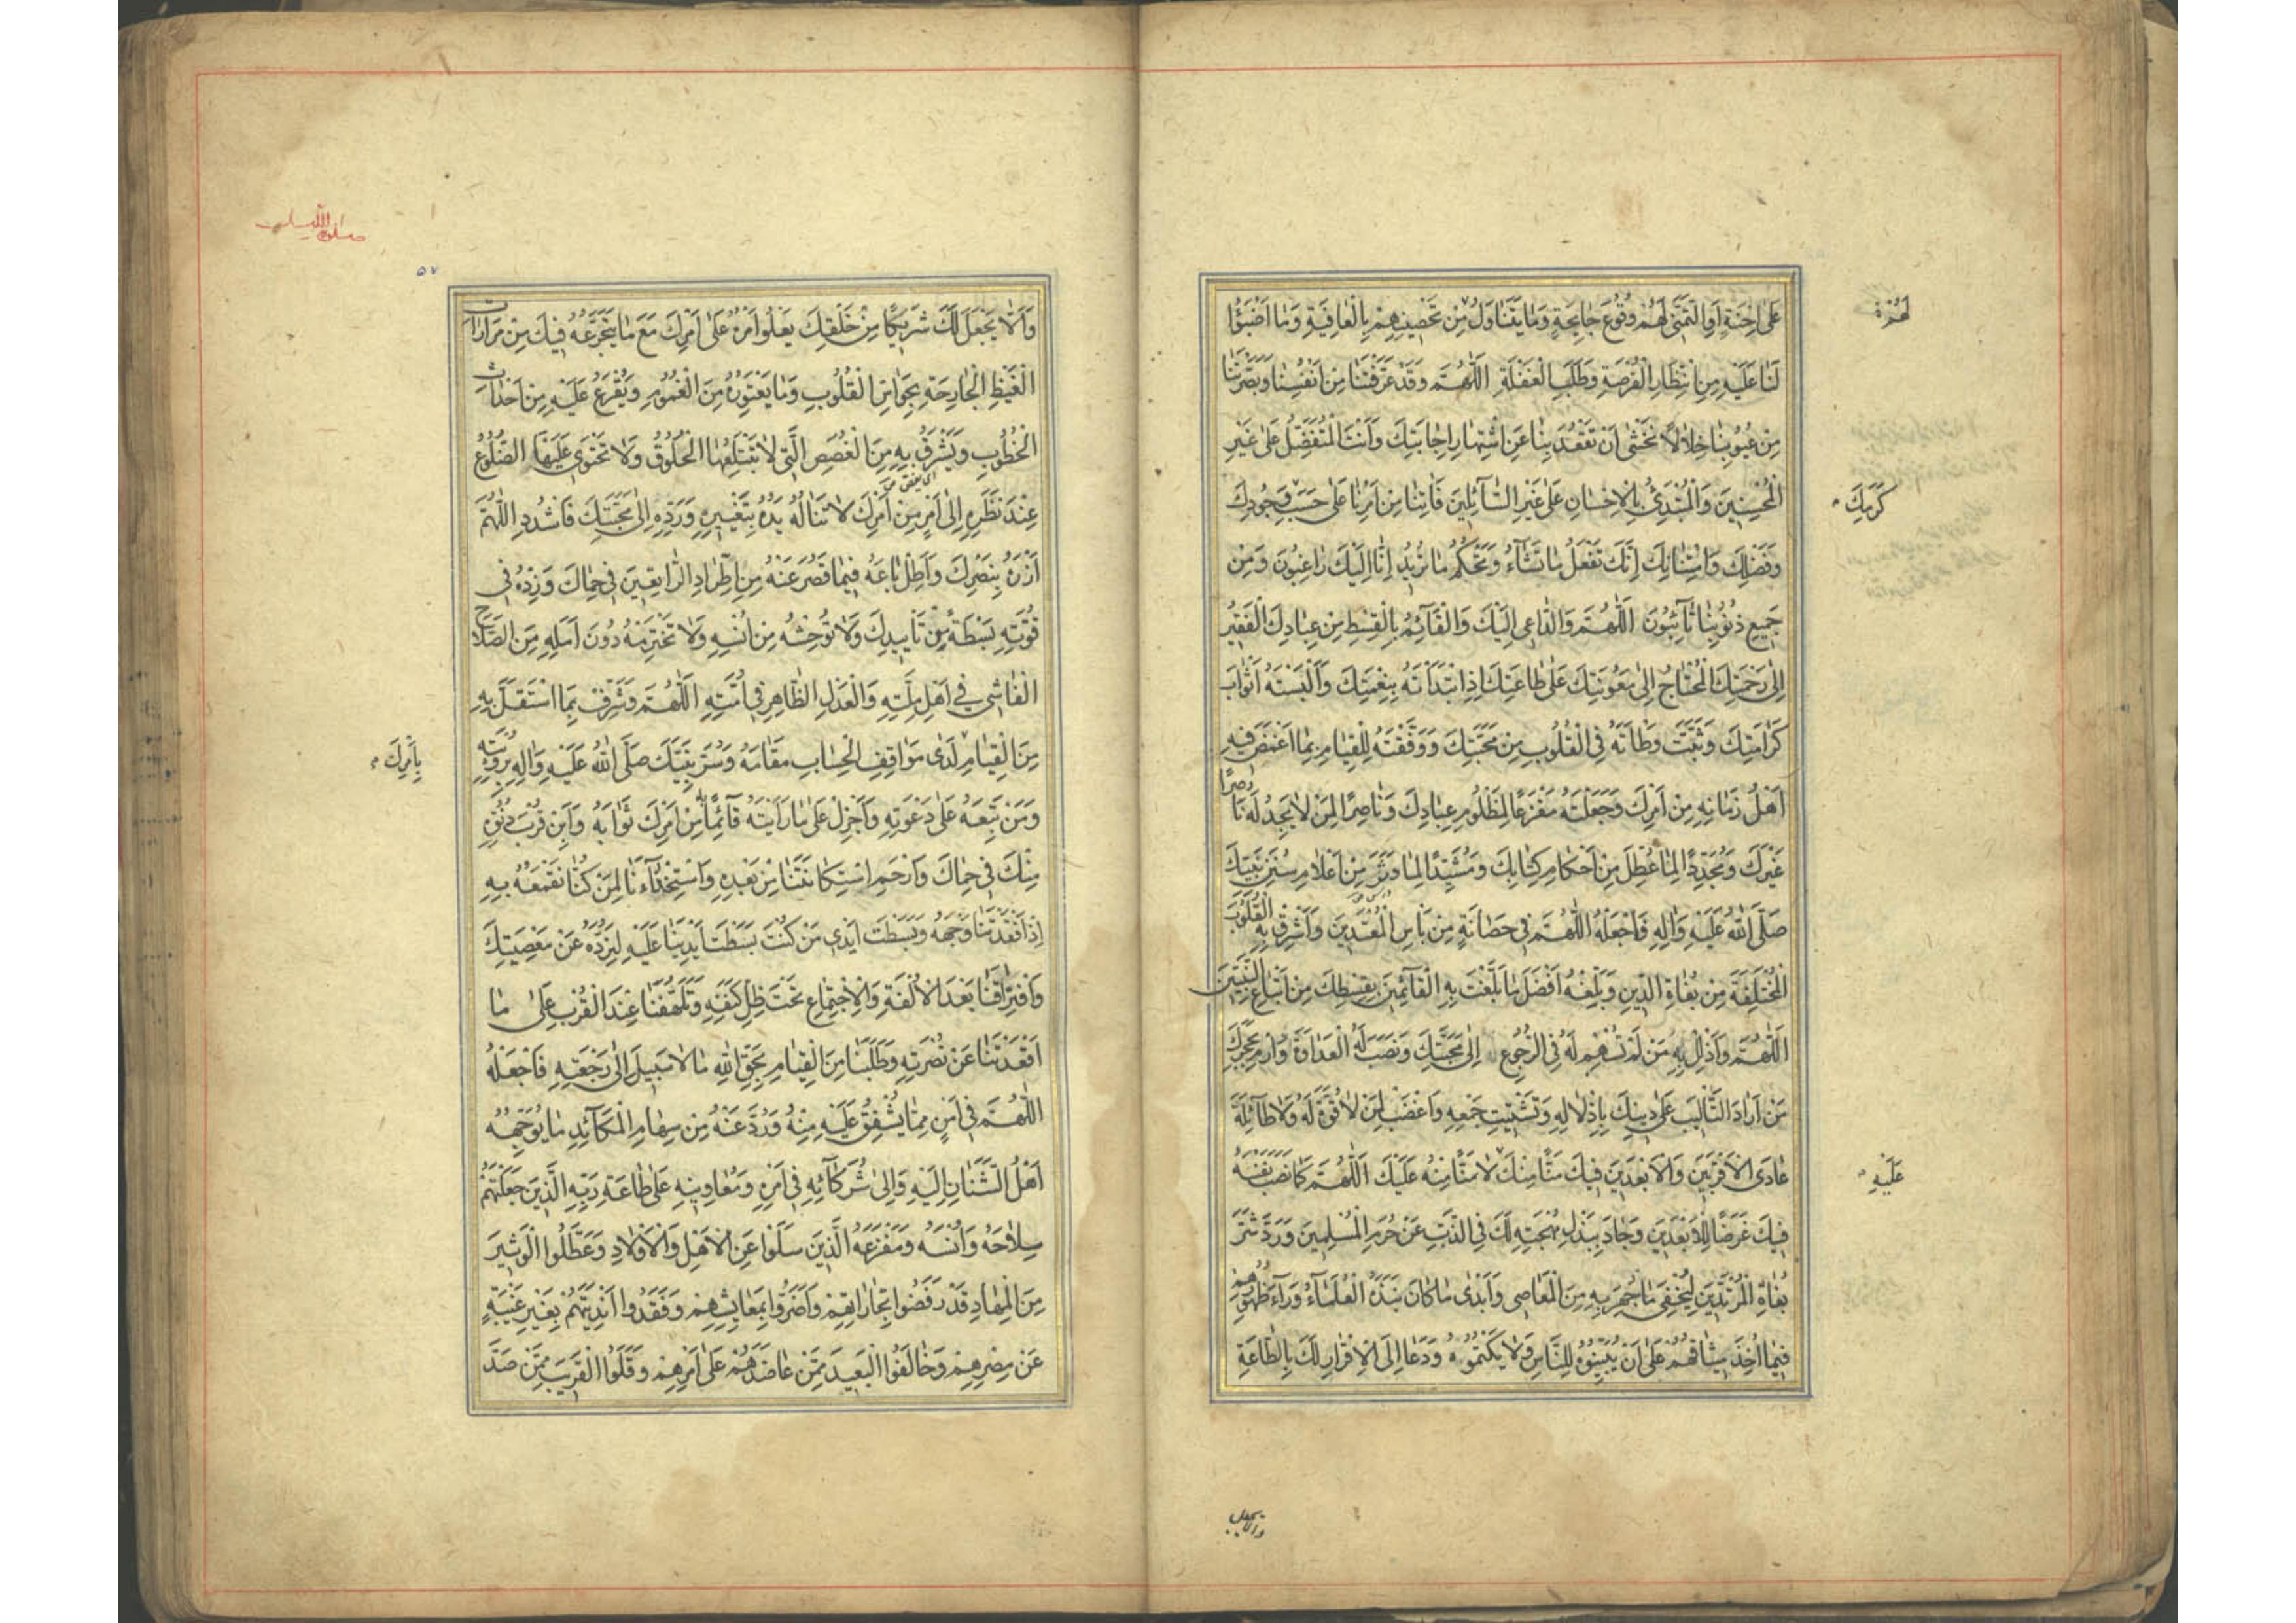 عَلىٰ اِحْنَةٍ اَوِ التَّمَنّى لَهُمْ وُقُوعَ جٰائِحَةٍ وَمٰا يَتَنٰاوَلُ مِنْ تَحْصينِهِمْ بِالْعٰافِيَةِ وَمٰا اَضْبَؤُا
لَنٰا عَلَيْهِ مِنِ انْتِظٰارِ الْفُرْصَةِ وَطَلَبِ الْغَفْلَةِ اَللّٰهُمَّ وَقَدْ عَرَّفْتَنٰا مِنْ اَنْفُسِنٰا وَبَصَّرْتَنٰا
مِنْ عُيُوبِنٰا خِلٰالاً نَخْشىٰ اَنْ تَقْعُدَ بِنٰا عَنِ اشْتِهٰارِ اِجٰابَتِكَ وَاَنْتَ الْمُتَفَضِّلُ عَلىٰ غَيْرِ
الْمُحْسِنينَ وَالْمُبْتَدِئُ بِالْاِحْسٰانِ عَلىٰ غَيْرِ السّٰآئِلينَ فَاْتِنٰا مِنْ اَمْرِنٰا عَلىٰ حَسَبِ جُودِكَ
وَفَضْلِكَ وَامْتِنٰانِكَ اِنَّكَ تَفْعَلُ مٰا تَشٰآءُ وَتَحْكُمُ مٰا تُريدُ اِنّٰا اِلَيْكَ رٰاغِبُونَ وَمِنْ
جَميعِ ذُنُوبِنٰا تٰآئِبُونَ اَللّٰهُمَّ وَالدّٰاعى اِلَيْكَ وَالْقٰآئِمُ بِالْقِسْطِ مِنْ عِبٰادِكَ الْفَقيرُ
اِلىٰ رَحْمَتِكَ الْمُحْتٰاجُ اِلىٰ مَعُونَتِكَ عَلىٰ طٰاعَتِكَ اِذِ ابْتَدَأْتَهُ بِنِعْمَتِكَ وَاَلْبَسْتَهُ اَثْوٰابَ
كَرٰامَتِكَ وَثَبَّتَّ وَطْاَتَهُ فِى الْقُلُوبِ مِنْ مَحَبَّتِكَ وَوَفَّقْتَهُ لِلْقِيٰامِ بِمٰا اَغْمَضَ فيهِ
اَهْلُ زَمٰانِهِ مِنْ اَمْرِكَ وَجَعَلْتَهُ مَفْزَعًا لِمَظْلُومِ عِبٰادِكَ وَنٰاصِرًا لِمَنْ لٰا يَجِدُ لَهُ نٰاصِرًا
غَيْرَكَ وَمُجَدِّدًا لِمٰا عُطِّلَ مِنْ اَحْكٰامِ كِتٰابِكَ وَمُشَيِّدًا لِمٰا دَثَرَ مِنْ اَعْلٰامِ سُنَنِ نَبِيِّكَ
صَلَّى اللّٰهُ عَلَيْهِ وَاٰلِهِ فَاجْعَلْهُ اللّٰهُمَّ فى حَصٰانَةٍ مِنْ بَاْسِ الْمُعْتَدينَ وَاَشْرِقْ بِهِ الْقُلُوبَ
الْمُخْتَلِفَةَ مِنْ بُغٰاةِ الدّينِ وَبَلِّغْهُ اَفْضَلَ مٰا بَلَّغْتَ بِهِ الْقٰآئِمينَ بِقِسْطِكَ مِنْ اَتْبٰاعِ النَّبِيّينَ
اَللّٰهُمَّ وَاَذْلِلْ بِهِ مَنْ لَمْ تُسْهِمْ لَهُ فِى الرُّجُوعِ اِلىٰ مَحَبَّتِكَ وَنَصَبَ لَهُ الْعَدٰاوَةَ وَارْمِ بِحَجَرِكَ
مَنْ اَرٰادَ التَّاْليبَ عَلىٰ دينِكَ بِاِذْلٰالِهِ وَتَشْتيتِ جَمْعِهِ وَاغْضَبْ لِمَنْ لٰا قُوَّةَ لَهُ وَلٰا طٰآئِلَةَ
عٰادَى الْاَقْرَبينَ وَالْاَبْعَدينَ فيكَ مَنًّا مِنْكَ لٰا مَنًّا مِنْهُ عَلَيْكَ اَللّٰهُمَّ كَمٰا نَصَبَ نَفْسَهُ
فيكَ غَرَضًا لِلْاَبْعَدينَ وَجٰادَ بِبَذْلِ مُهْجَتِهِ لَكَ فِى الذَّبِّ عَنْ حُرَمِ الْمُسْلِمينَ وَرَدَّ شَرَّ
بُغٰاةِ الْمُرْتَدّينَ لِيُخْفِىَ مٰا جُهِرَ بِهِ مِنَ الْمَعٰاصى وَاَبْدىٰ مٰا كٰانَ نَبَذَهُ الْعُلَمٰآءُ وَرٰآءَ ظُهُورِهِمْ
فيمٰا اُخِذَ ميثٰاقُهُمْ عَلىٰ اَنْ يُبَيِّنُوهُ لِلنّٰاسِ وَلٰا يَكْتُمُوهُ وَدَعٰا اِلَى الْاِقْرٰارِ لَكَ بِالطّٰاعَةِ
لَهُمْ
كَرَمِكَ
عَلَيْهِ
والا يجعل
صلوة الليل
٥٧
وَاَلّٰا يَجْعَلَ لَكَ شَريكًا مِنْ خَلْقِكَ يَعْلُو اَمْرُهُ عَلىٰ اَمْرِكَ مَعَ مٰا يَتَجَرَّعُهُ فيكَ مِنْ مَرٰارٰاتِ
الْغَيْظِ الْجٰارِحَةِ بِحَوٰاسِّ الْقُلُوبِ وَمٰا يَعْتَوِرُهُ مِنَ الْغُمُومِ وَيَفْرُعُ عَلَيْهِ مِنْ اَحْدٰاثِ
الْخُطُوبِ وَيَشْرَقُ بِهِ مِنَ الْغُصَصِ الَّتى لٰا تَبْتَلِعُهَا الْحُلُوقُ وَلٰا تَحْتَوى عَلَيْهَا الضُّلُوعُ
عِنْدَ نَظَرِهِ اِلىٰ اَمْرٍ مِنْ اَمْرِكَ لٰا تَنٰالُهُ يَدُهُ بِتَغْييرِهِ وَرَدِّهِ اِلىٰ مَحَبَّتِكَ فَاشْدُدِ اللّٰهُمَّ
اَزْرَهُ بِنَصْرِكَ وَاَطِلْ بٰاعَهُ فيمٰا قَصُرَ عَنْهُ مِنِ اطِّرٰادِ الرّٰاتِعينَ فى حِمٰاكَ وَزِدْهُ فى
قُوَّتِهِ بَسْطَةً مِنْ تَاْييدِكَ وَلٰا تُوحِشْهُ مِنْ اُنْسِهِ وَلٰا تَخْتَرِمْهُ دُونَ اَمَلِهِ مِنَ الصَّلٰاحِ
الْفٰاشى فى اَهْلِ مِلَّتِهِ وَالْعَدْلِ الظّٰاهِرِ فى اُمَّتِهِ اَللّٰهُمَّ وَشَرِّفْ بِمَا اسْتَقَلَّ بِهِ
مِنَ الْقِيٰامِ لَدىٰ مَوٰاقِفِ الْحِسٰابِ مَقٰامَهُ وَسُرَّ نَبِيَّكَ صَلَّى اللّٰهُ عَلَيْهِ وَاٰلِهِ بِرُؤْيَتِهِ
وَمَنْ تَبِعَهُ عَلىٰ دَعْوَتِهِ وَاَجْزِلْ عَلىٰ مٰا رَاَيْتَهُ قٰآئِمًا بِهِ مِنْ اَمْرِكَ ثَوٰابَهُ وَاَبِنْ قُرْبَ دُنُوِّهِ
مِنْكَ فى حِمٰاكَ وَارْحَمِ اسْتِكٰانَتَنٰا مِنْ بَعْدِهِ وَاسْتِخْذٰآءَنٰا لِمَنْ كُنّٰا نَقْمَعُهُ بِهِ
اِذْ اَفْقَدْتَنٰا وَجْهَهُ وَبَسَطْتَ اَيْدِىَ مَنْ كُنْتَ بَسَطْتَ اَيْدِيَنٰا عَلَيْهِ لِنَرُدَّهُ عَنْ مَعْصِيَتِكَ
وَافْتِرٰاقَنٰا بَعْدَ الْاُلْفَةِ وَالْاِجْتِمٰاعِ تَحْتَ ظِلِّ كَنَفِهِ وَتَلَهُّفَنٰا عِنْدَ الْقُرْبِ عَلىٰ مٰا
اَقْعَدْتَنٰا عَنْ نُصْرَتِهِ وَطَلَبَنٰا مِنَ الْقِيٰامِ بِحَقِّ اللّٰهِ مٰا لٰا سَبيلَ اِلىٰ رَجْعَتِهِ فَاجْعَلْهُ
اللّٰهُمَّ فى اَمْنٍ مِمّٰا يُشْفِقُ عَلَيْهِ مِنْهُ وَرُدَّ عَنْهُ مِنْ سِهٰامِ الْمَكٰآئِدِ مٰا يُوَجِّهُهُ
اَهْلُ الشَّنَئٰانِ اِلَيْهِ وَاِلىٰ شُرَكٰآئِهِ فى اَمْرِهِ وَمُعٰاوِنيهِ عَلىٰ طٰاعَةِ رَبِّهِ الَّذينَ جَعَلْتَهُمْ
سِلٰاحَهُ وَاُنْسَهُ وَمَفْزَعَهُ الَّذينَ سَلَوْا عَنِ الْاَهْلِ وَالْاَوْلٰادِ وَعَطَّلُوا الْوَثيرَ
مِنَ الْمِهٰادِ قَدْ رَفَضُوا تِجٰارٰاتِهِمْ وَاَضَرُّوا بِمَعٰايِشِهِمْ وَفَقَدُوا اَنْدِيَتَهُمْ بِغَيْرِ غَيْبَةٍ
عَنْ مِصْرِهِمْ وَحٰالَفُوا الْبَعيدَ مِمَّنْ عٰاضَدَهُمْ عَلىٰ اَمْرِهِمْ وَقَلَوُا الْقَريبَ مِمَّنْ صَدَّ
بِاَمْرِكَ